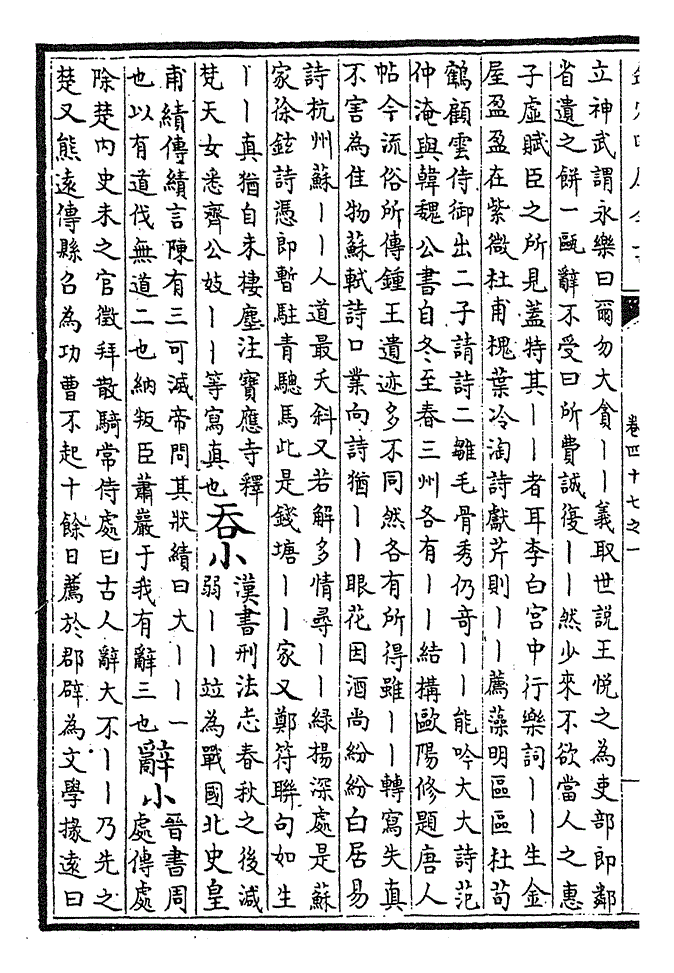 卷四十七之一
立神武謂永樂曰爾勿大貪丨丨義取世說王悅之為吏部郎鄰
省遺之餅一甌辭不受曰所費誠復丨丨然少來不欲當人之惠
子虛賦臣之所見蓋特其丨丨者耳李白宮中行樂詞丨丨生金
屋盈盈在紫微杜甫槐葉冷淘詩獻芹則丨丨薦藻明區區杜荀
鶴顧雲侍御出二子請詩二雛毛骨秀仍竒丨丨能吟大大詩范
仲淹與韓魏公書自冬至春三州各有丨丨結構歐陽修題唐人
帖今流俗所傳鍾王遺迹多不同然各有所得雖丨丨轉寫失真
不害為佳物蘇軾詩口業向詩猶丨丨眼花因酒尚紛紛白居易
詩杭州蘇丨丨人道最夭斜又若解多情尋丨丨緑楊深處是蘇
家徐鉉詩憑郎暫駐青驄馬此是錢塘丨丨家又鄭符聯句如生
丨丨真猶自未棲塵注寶應寺釋
梵天女悉齊公妓丨丨等寫真也
吞小
漢書刑法志春秋之後滅
弱丨丨竝為戰國北史皇
甫績傳績言陳有三可滅帝問其狀績曰大丨丨一
也以有道伐無道二也納叛臣蕭巖于我有辭三也
辭小
晉書周
處傳處
除楚内史未之官徵拜散騎常侍處曰古人辭大不丨丨乃先之
楚又熊遠傳縣召為功曹不起十餘日薦於郡辟為文學掾遠曰